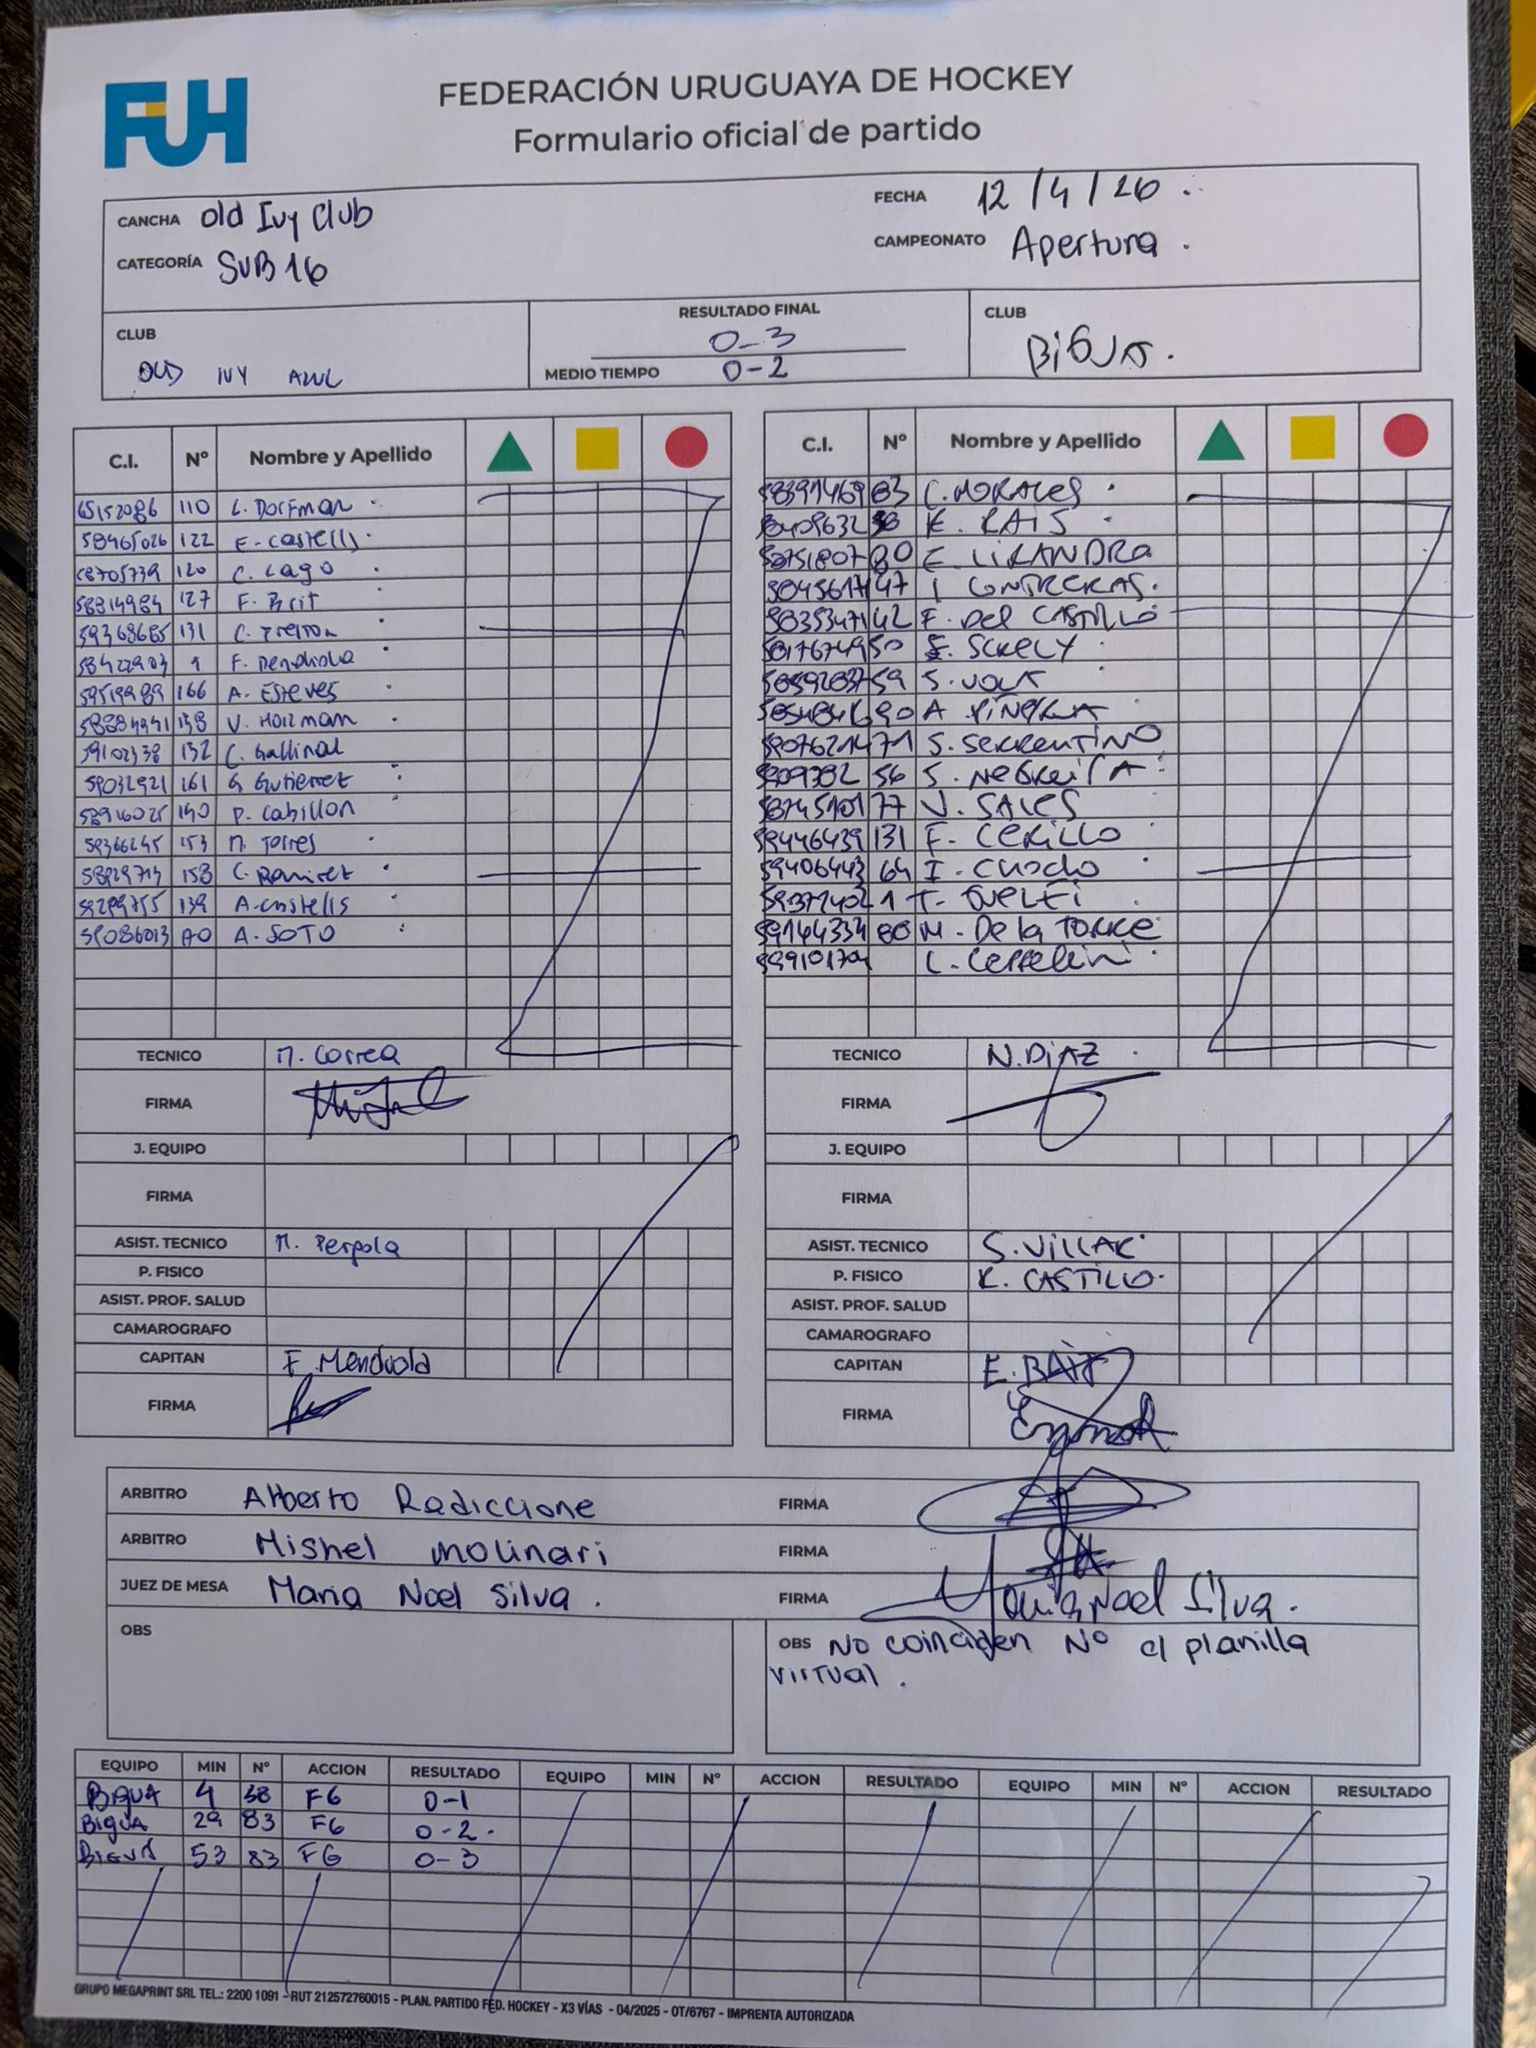 FUH
FEDERACIÓN URUGUAYA DE HOCKEY
Formulario oficial de partido
CANCHA Old Ivy Club
FECHA 12/4/26.
CATEGORÍA SUB 16
CAMPEONATO Apertura.
CLUB OLD IVY AZUL
RESULTADO FINAL 0-3
MEDIO TIEMPO 0-2
CLUB BIGUA.
C.I. Nº Nombre y Apellido
65152086 110 L. Dorfman
58465026 122 E. Castells
58705739 120 C. Lago
58814984 127 F. Brit
59368685 131 C.
1 F.
59519989 166 A. Esteves
138 V. Hoizman
59102338 132 C. Gallinal
59032921 161 G. Gutierrez
58916025 140 P. Cabillon
59366245 153 M. Torres
58929714 158 C. Ramirez
59289755 139 A. Castells
59086013 A. SOTO
C.I. Nº Nombre y Apellido
58391469 83 C. MORALES
38 E. BAIS
80 E. LIZANDRA
47 I CONTRERAS.
58353471 42 F. Del CASTILLO
58176749 50 SCKELY
59 S. VOLT
90 A PIÑEYRUA
59076214 71 S. SERRENTINO
56 S. NEGREIRA
58745101 77 V. SALES
59446439 131 F. CERILLO
59406443 64 I. Criado
59372402 1 T. GUELFI
59144334 88 M. De la TORRE
L.
TECNICO M. Correa
FIRMA
J. EQUIPO
FIRMA
ASIST. TECNICO M. Pergola
P. FISICO
ASIST. PROF. SALUD
CAMAROGRAFO
CAPITAN F. Mendiola
FIRMA
TECNICO N. DIAZ
FIRMA
J. EQUIPO
FIRMA
ASIST. TECNICO S. VILLAR
P. FISICO K. CASTILLO.
ASIST. PROF. SALUD
CAMAROGRAFO
CAPITAN E. BAIS
FIRMA
ARBITRO Alberto Radiccione FIRMA
ARBITRO Mishel Molinari FIRMA
JUEZ DE MESA Maria Noel Silva. FIRMA Maria Noel Silva.
OBS
OBS No coinciden Nº c/ planilla
virtual.
EQUIPO MIN Nº ACCION RESULTADO EQUIPO MIN Nº ACCION RESULTADO EQUIPO MIN Nº ACCION RESULTADO
BIGUA 4 38 FG 0-1
BIGUA 29 83 FG 0-2.
BIGUA 53 83 FG 0-3
GRUPO MEGAPRINT SRL TEL.: 2200 1091 - RUT 212572760015 - PLAN. PARTIDO FED. HOCKEY - X3 VÍAS - 04/2025 - OT/6767 - IMPRENTA AUTORIZADA